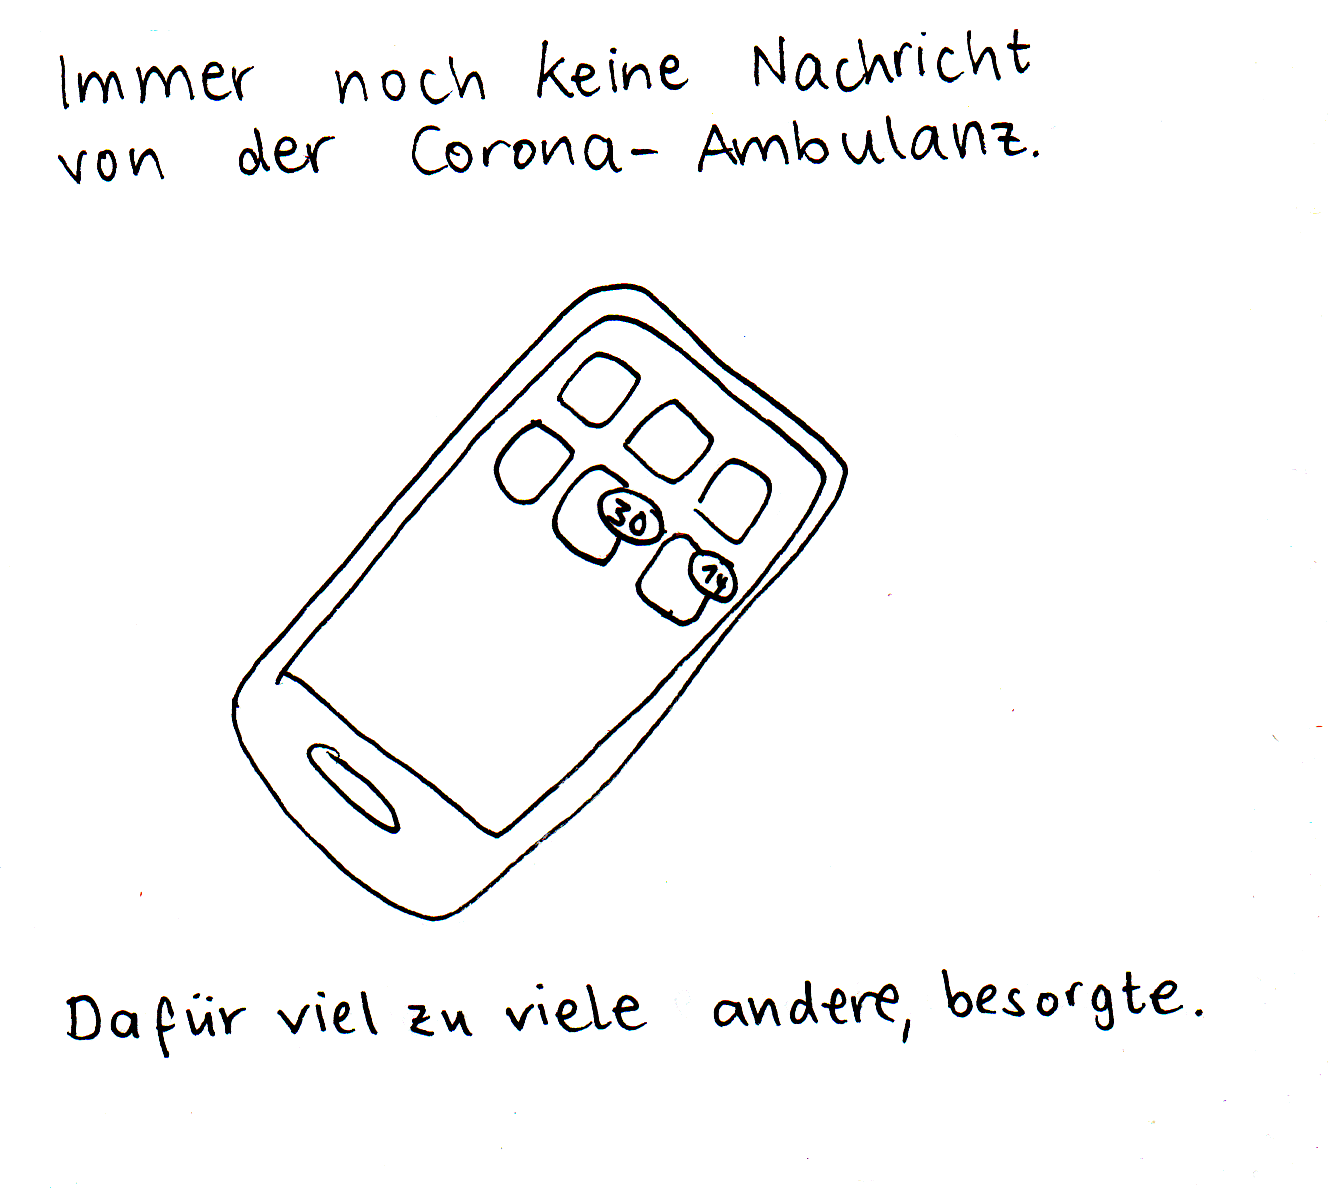 Immer noch keine Nachricht
von der Corona-Ambulanz.
30
14
Dafür viel zu viele andere, besorgte.